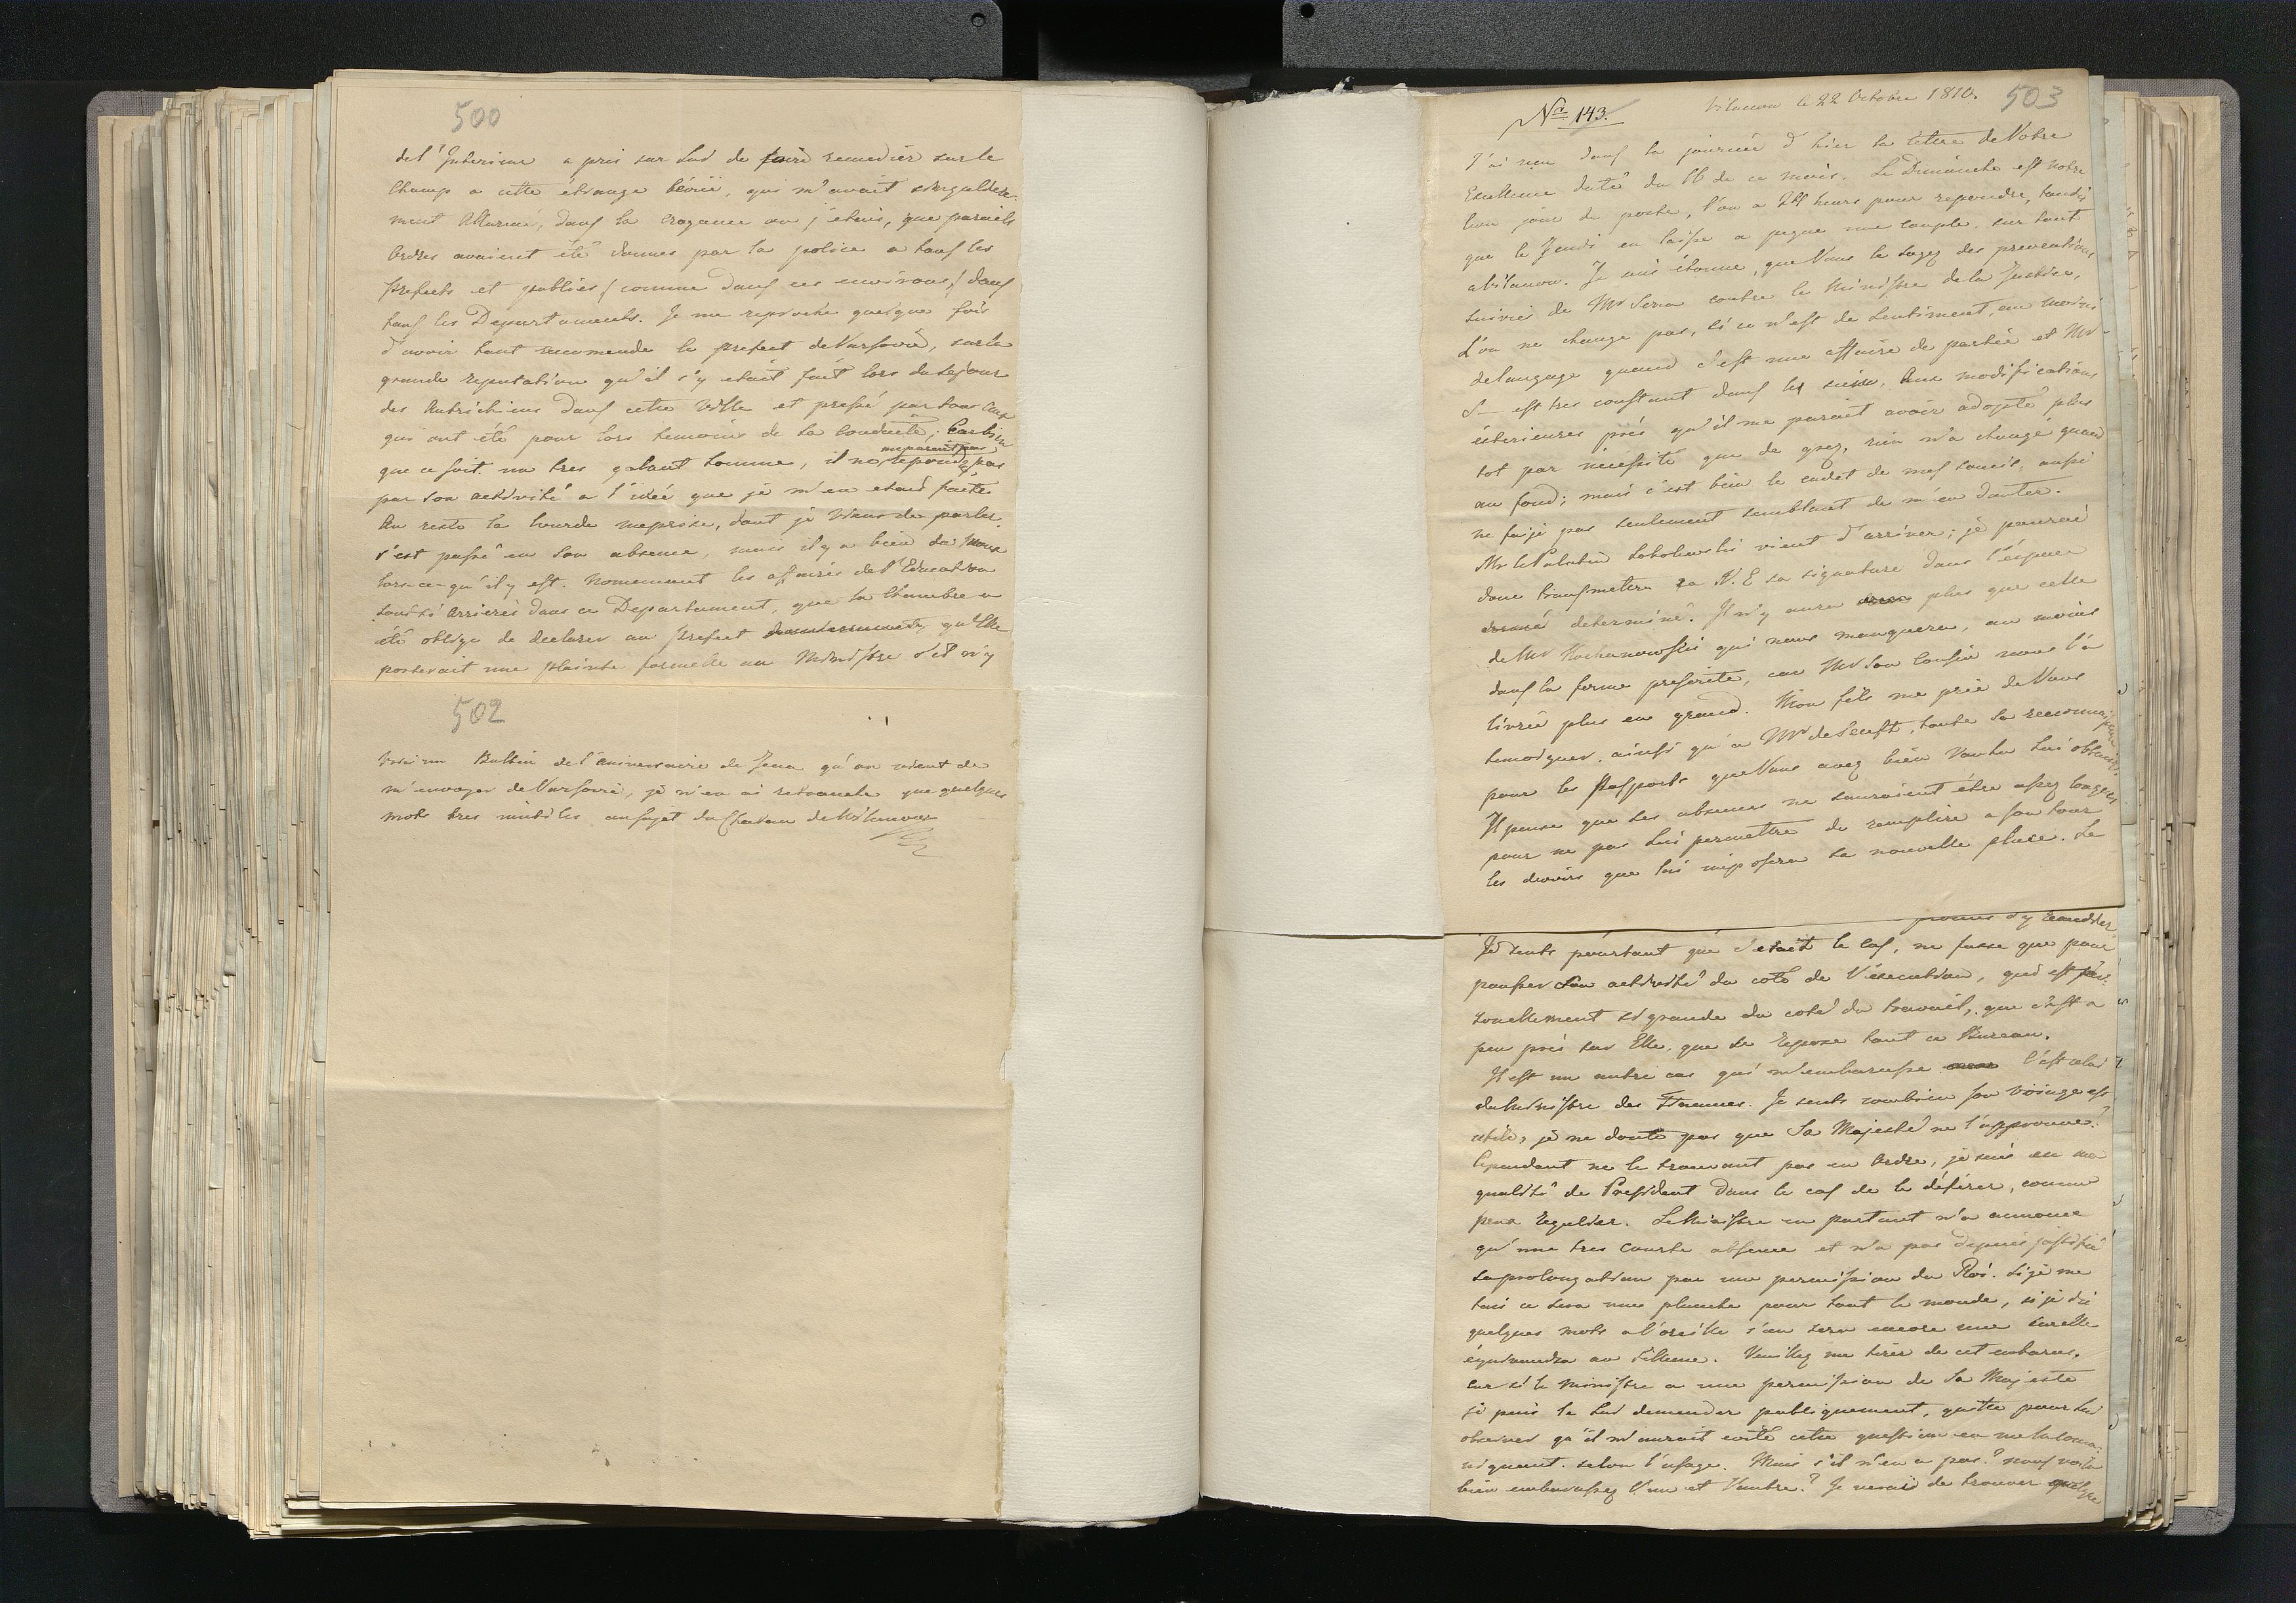 500
de l'Interieur a pris sur lui de faire remedier sur le
champ a cette étrange bévüe, qui m'avait singuliere-
ment allarmé, dans la croyance ou j'etais, que pareils
Ordres avaient été donnés par la police a tous les
prefects et publiés (comme dans ces environs) dans
tous les Departements. Je me reproche quelque fois
d'avoir tant recomendé le prefect de Varsovie, sur la
grande reputation qu'il s'y etait fait lors du sejour
des Autrichiens dans cette Ville et pressé par tous ceux
qui ont été pour lors temoins de sa conduite; Car bien
que ce soit un tres galant homme, il ne repond pas
par son activité a l'idée que je m'en etais faite
Au reste la lourde meprise, dont je viens de parler
s'est passé en son absence, mais il y a bien du
lors-ce-qu'il y est. Nomement les affaires de l'Education
sont si arrierés dans ce Departement, que la Chambre a
été obligé de declarer au prefect qu'Elle
porterait une plainte formelle au Ministre s'il n'y
502
Voici un Bultin de l'aniversaire de Jena qu'on vient de
m'envoyer de Varsovie, je n'en ai retranché que quelques
mots tres inutiles au sujet du Chateau de Wilanow
Nr. 143.
Vilanow le 22 Octobre 1810.
503
J'ai reçu dans la journée d'hier la lettre de Votre
Excellence daté du 16 de ce mois. Le Dimanche est notre
bon jour de poste, l'on a 24 heurs pour repondre, tandis
que le Jeudi en laisse a peine une couple, sur tout
a Vilanow. Je suis étonné, que Vous le soyez des preventions
suivies de Mr Serra contre le Ministre de la Justice,
L'on ne change pas, si ce n'est de sentiment, au moins
de langage quand c'est une affaire de partie et Mr
S— est tres constant dans les siens. Aux modifications
exterieures prés qu'il me parait avoir adopté plus
tot par necessité que de grez, rien n'a changé quand
au fond; mais c'est bien le cadet de mes soucis; aussi
ne fai-je pas seulement semblant de m'en douter.
Mr le Palatin Sobolewski vient d'arriver; je pourai
donc transmettre a V. E sa signature dans l'espace
determiné. Il n'y aura plus que celle
de Mr Kochanowski qui nous manquera, au moins
dans la forme prescrite, car Mr Son Cousin nous l'a
livrée plus en grand. Mon fils me prie de Vous
temoigner, ainsi qu'a Mr de Senft, toute sa reconnaissance
pour les Passports que Vous avez bien voulu lui obtenir.
Il pense que ses absences ne sauroient être assez longues
pour ne pas lui permettre de remplire a son tour
les devoirs que lui imposera sa nouvelle place. Le
promis d'y remedier
Je sents pourtant que c'etait le cas, ne fusse que pour
pousser son activité du coté de l'execution, qui est
sonellement si grande du coté du travail, que c'est a
peu prés sur Elle, que se repose tout ce Bureau.
Il est un autre cas qui m'embarasse c'est celui
du Ministre des Finances. Je sents combien son voiage est
utile, je ne doute pas que Sa Majesté ne l'approuve.
Cependant ne le trouvant pas en Ordre, je suis en ma
qualité de President dans le cas de le déférer, comme
peux regulier. Le Ministre en partant n'a annoncé
qu'une tres courte absence et n'a pas depuis justifié
sa prolongation par une permission du Roi. Si je me
tais ce sera une planche pour tout le monde, si je dis
quelques mots a l'oreille s'en sera encore une
au silence. Veuillez me tirer de cet embaras.
Car si le Ministre a une permission de Sa Majesté
je puis la lui demander publiquement, quitte pour lui
observer qu'il m'auroit evité cette question en me la comu-
niquant selon l'usage. Mais s'il n'en a pas? nous voila
bien embarassez l'un et l'autre? Je venais de trouver quelque